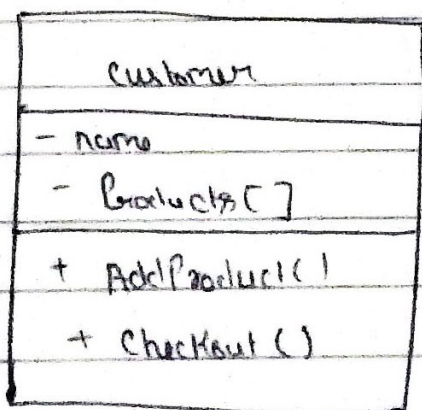 Customer
- name
- Products[]
+ AddProduct()
+ Checkout()